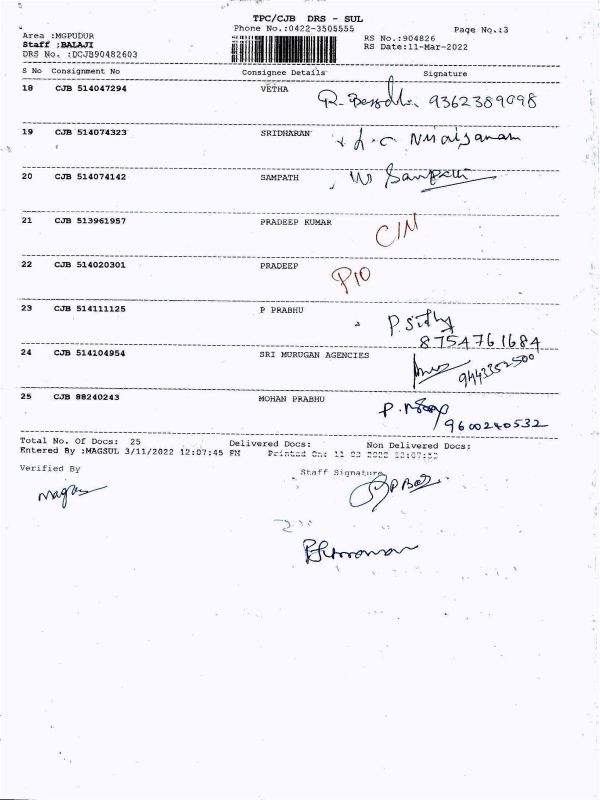 TPC/CJB DRS - SUL
Phone No.:0422-3505555
Page No.:3
Area :MGPUDUR
RS No.:904826
Staff :BALAJI
RS Date:11-Mar-2022
DRS No. :DCJB90482603
S No Consignment No Consignee Details Signature
18 CJB 514047294 VETHA
R. 9362389098
19 CJB 514074323 SRIDHARAN
20 CJB 514074142 SAMPATH
Sampath
21 CJB 513961957 PRADEEP KUMAR
C/M
22 CJB 514020301 PRADEEP
P10
23 CJB 514111125 P PRABHU
P.
8754761684
24 CJB 514104954 SRI MURUGAN AGENCIES
9443352500
25 CJB 88240243 MOHAN PRABHU
P.
9600240532
Total No. Of Docs: 25 Delivered Docs: Non Delivered Docs:
Entered By :MAGSUL 3/11/2022 12:07:45 PM Printed On: 11 03 2022 12:07:52
Verified By
Staff Signature